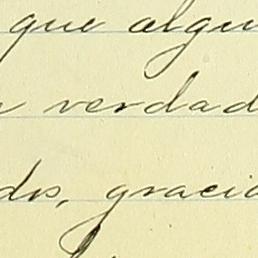 que algu
verdad
dos, gracia